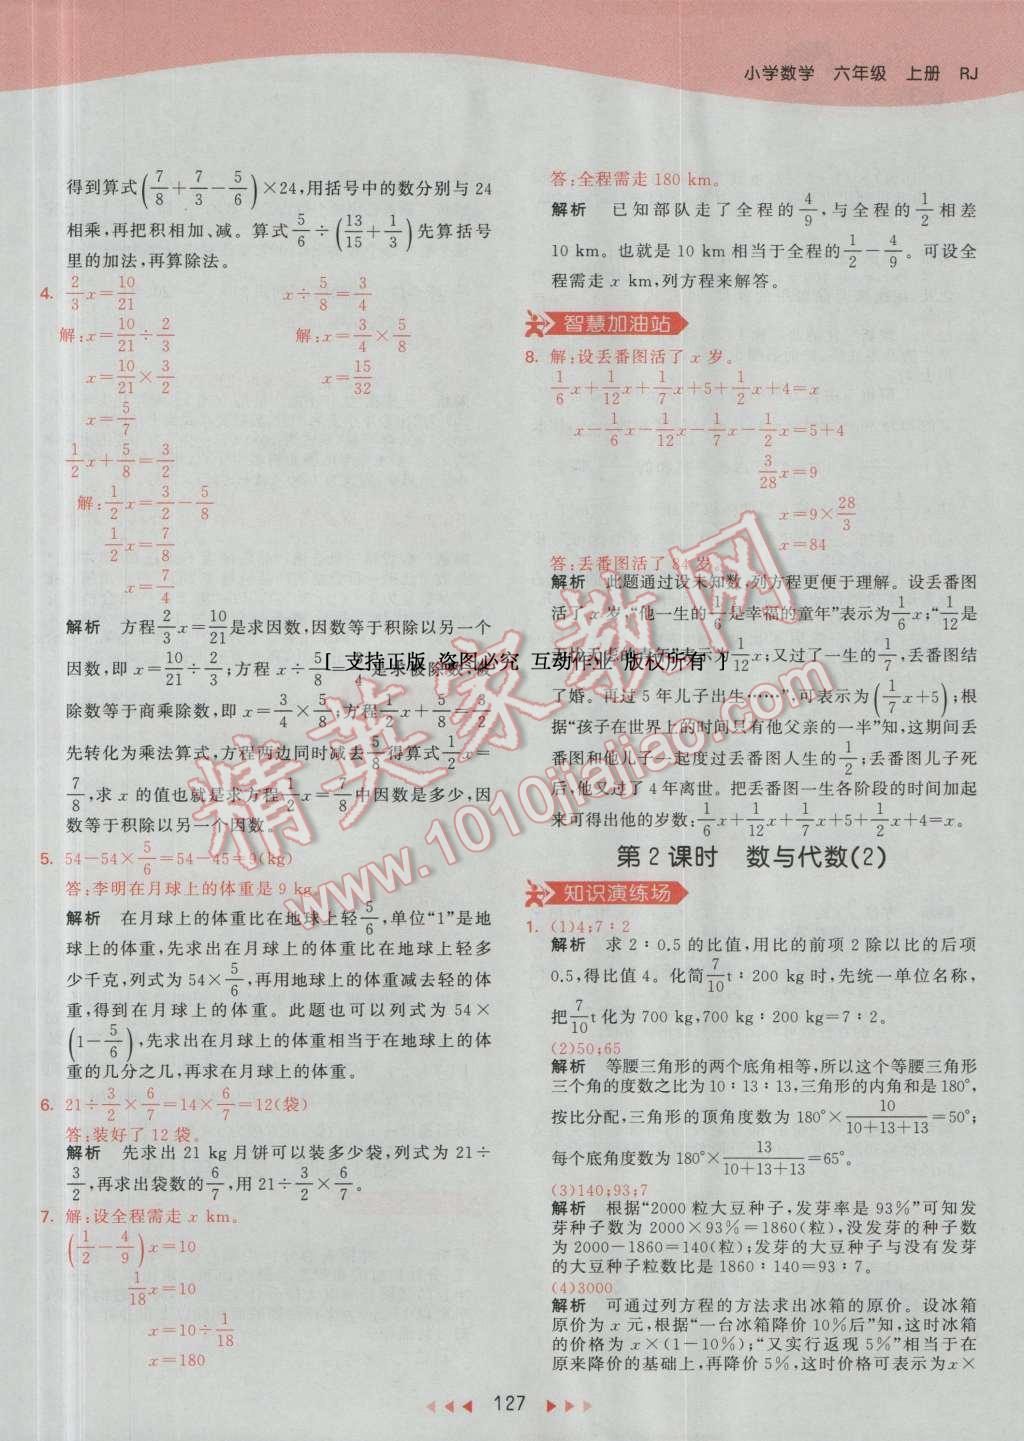 小学数学 六年级 上册 RJ
得到算式(7/8+7/3-5/6)×24,用括号中的数分别与 24
相乘,再把积相加、减。算式5/6÷(13/15+1/3)先算括号
里的加法,再算除法。
4. 2/3x=10/21  x÷5/8=3/4
解:x=10/21÷2/3  解:x=3/4×5/8
x=10/21×3/2  x=15/32
x=5/7
1/2x+5/8=3/2
解:1/2x=3/2-5/8
1/2x=7/8
x=7/4
解析 方程2/3x=10/21是求因数,因数等于积除以另一个
因数,即 x=10/21÷2/3;方程 x÷5/8=3/4是求被除数,被
除数等于商乘除数,即 x=3/4×5/8;方程1/2x+5/8=3/2
先转化为乘法算式,方程两边同时减去5/8得算式1/2x=
7/8,求 x 的值也就是求方程1/2x=7/8中因数是多少,因
数等于积除以另一个因数。
5. 54-54×5/6=54-45=9(kg)
答:李明在月球上的体重是 9 kg。
解析 在月球上的体重比在地球上轻5/6,单位“1”是地
球上的体重,先求出在月球上的体重比在地球上轻多
少千克,列式为 54×5/6,再用地球上的体重减去轻的体
重,得到在月球上的体重。此题也可以列式为 54×
(1-5/6),先求出在月球上的体重相当于在地球上的体
重的几分之几,再求出在月球上的体重。
6. 21÷3/2×6/7=14×6/7=12(袋)
答:装好了 12 袋。
解析 先求出 21 kg 月饼可以装多少袋,列式为 21÷
3/2,再求出袋数的6/7,用 21÷3/2×6/7。
7. 解:设全程需走 x km。
(1/2-4/9)x=10
1/18x=10
x=10÷1/18
x=180
答:全程需走 180 km。
解析 已知部队走了全程的4/9,与全程的1/2相差
10 km。也就是 10 km 相当于全程的1/2-4/9。可设全
程需走 x km,列方程来解答。
智慧加油站
8. 解:设丢番图活了 x 岁。
1/6x+1/12x+1/7x+5+1/2x+4=x
x-1/6x-1/12x-1/7x-1/2x=5+4
3/28x=9
x=9×28/3
x=84
答:丢番图活了 84 岁。
解析 此题通过设未知数,列方程更便于理解。设丢番图
活了 x 岁,“他一生的1/6是幸福的童年”表示为1/6x;“1/12是
无忧无虑的青年”表示为1/12x;又过了一生的1/7,丢番图结
了婚。再过 5 年儿子出生……”,可表示为(1/7x+5);根
据“孩子在世界上的时间只有他父亲的一半”知,这期间丢
番图和他儿子一起度过丢番图人生的1/2;丢番图儿子死
后,他又过了 4 年离世。把丢番图一生各阶段的时间加起
来可得出他的岁数:1/6x+1/12x+1/7x+5+1/2x+4=x。
第 2 课时 数与代数(2)
知识演练场
1. (1)4;7∶2
解析 求 2∶0.5 的比值,用比的前项 2 除以比的后项
0.5,得比值 4。化简7/10t∶200 kg 时,先统一单位名称,
把7/10t 化为 700 kg,700 kg∶200 kg=7∶2。
(2)50;65
解析 等腰三角形的两个底角相等,所以这个等腰三角形
三个角的度数之比为 10∶13∶13,三角形的内角和是 180°,
按比分配,三角形的顶角度数为 180°×10/(10+13+13)=50°;
每个底角度数为 180°×13/(10+13+13)=65°。
(3)140;93;7
解析 根据“2000 粒大豆种子,发芽率是 93%”可知发
芽种子数为 2000×93%=1860(粒),没发芽的种子数
为 2000-1860=140(粒);发芽的大豆种子与没有发芽
的大豆种子粒数比是 1860∶140=93∶7。
(4)3000
解析 可通过列方程的方法求出冰箱的原价。设冰箱
原价为 x 元,根据“一台冰箱降价 10%后”知,这时冰箱
的价格为 x×(1-10%);“又实行返现 5%”相当于在
原来降价的基础上,再降价 5%,这时价格可表示为 x×
127
[ 支持正版 盗图必究 互动作业 版权所有 ]
精英家教网
www.1010jiajiao.com